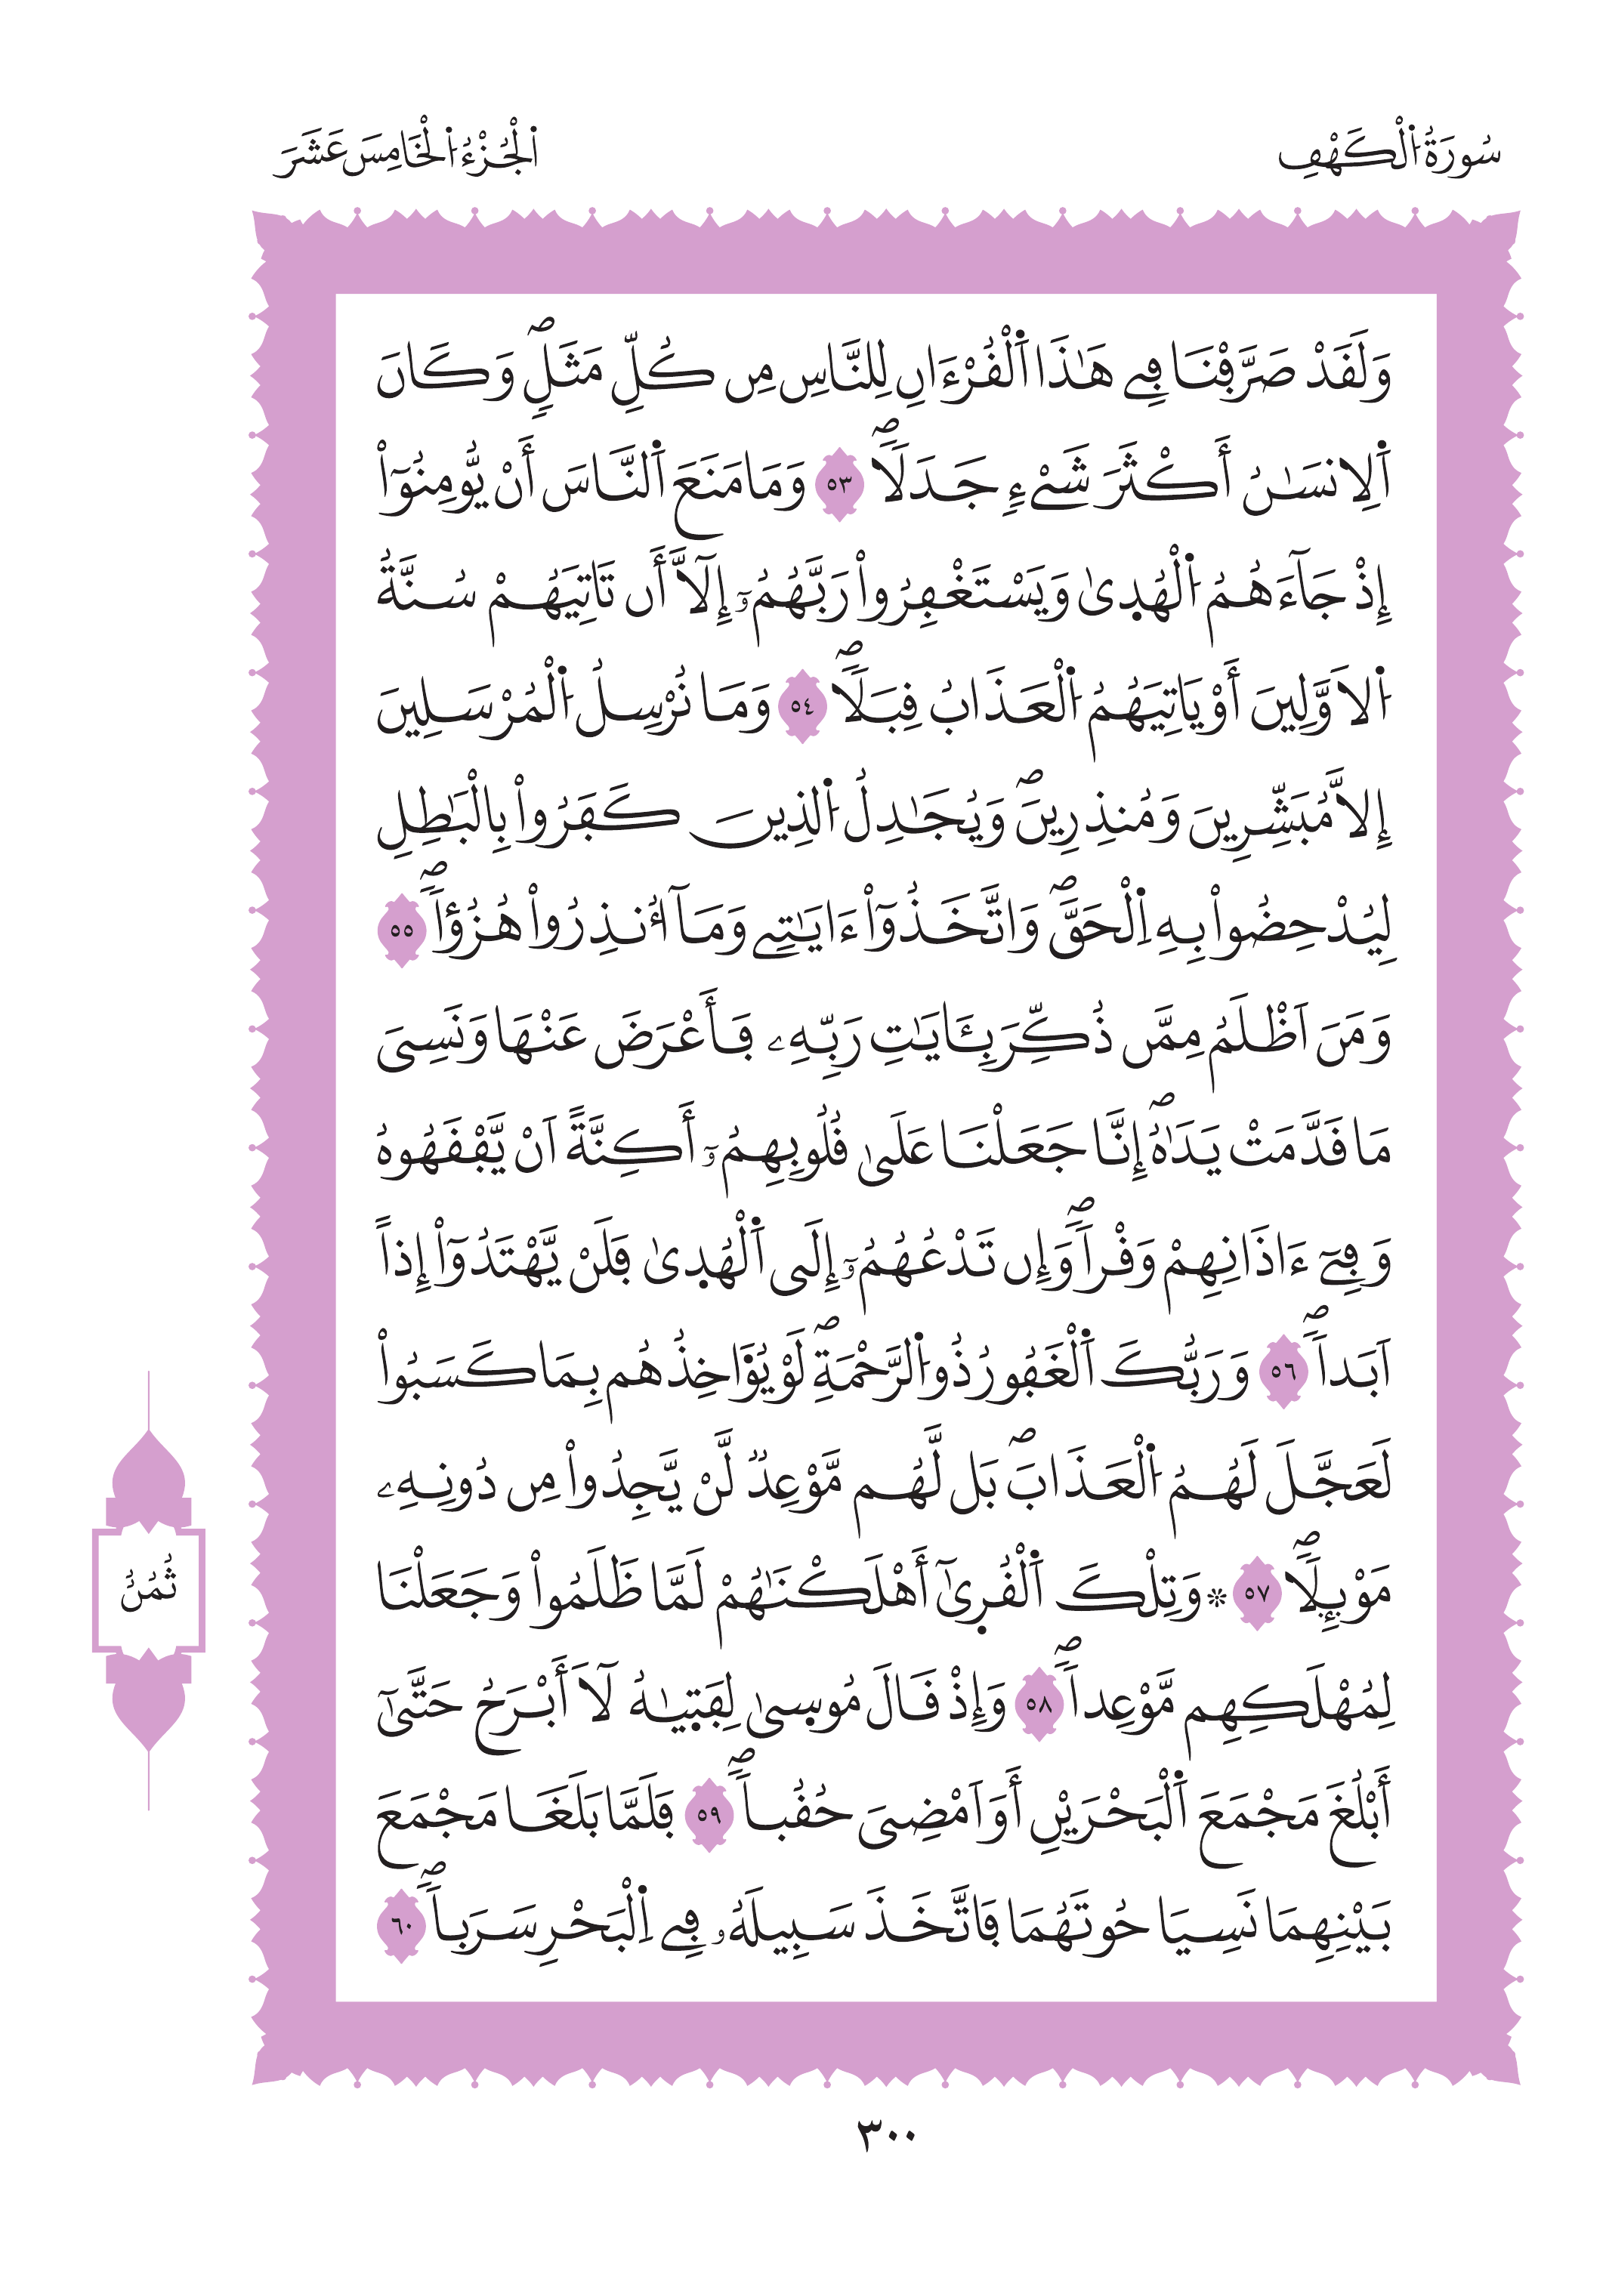 سُورَةُ اُ۬لْكَهْفِ
اَ۬لْجُزْءُ اُ۬لْخَامِسَ عَشَرَ
وَلَقَدْ صَرَّفْنَا فِے هَٰذَا اَ۬لْقُرْءَانِ لِلنَّاسِ مِن كُلِّ مَثَلٖۖ وَكَانَ
اَ۬لِانسَٰنُ أَكْثَرَ شَےْءٖ جَدَلاٗۖ ٥٣ وَمَا مَنَعَ اَ۬لنَّاسَ أَنْ يُّومِنُوٓاْ
إِذْ جَآءَهُمُ اُ۬لْهُد۪يٰ وَيَسْتَغْفِرُواْ رَبَّهُمُۥٓ إِلَّآ أَن تَاتِيَهُمْ سُنَّةُ
اُ۬لَاوَّلِينَ أَوْ يَاتِيَهُمُ اُ۬لْعَذَابُ قِبَلاٗۖ ٥٤ وَمَا نُرْسِلُ اُ۬لْمُرْسَلِينَ
إِلَّا مُبَشِّرِينَ وَمُنذِرِينَۖ وَيُجَٰدِلُ اُ۬لذِينَ كَفَرُواْ بِالْبَٰطِلِ
لِيُدْحِضُواْ بِهِ اِ۬لْحَقَّۖ وَاتَّخَذُوٓاْ ءَايَٰتِے وَمَآ أُنذِرُواْ هُزُؤاٗۖ ٥٥
وَمَنَ اَظْلَمُ مِمَّن ذُكِّرَ بِـَٔايَٰتِ رَبِّهِۦ فَأَعْرَضَ عَنْهَا وَنَسِىَ
مَا قَدَّمَتْ يَدَٰهُۖ إِنَّا جَعَلْنَا عَلَىٰ قُلُوبِهِمُۥٓ أَكِنَّةً اَنْ يَّفْقَهُوهُ
وَفِےٓ ءَاذَانِهِمْ وَقْراٗۖ وَإِن تَدْعُهُمُۥٓ إِلَى اَ۬لْهُد۪يٰ فَلَنْ يَّهْتَدُوٓاْ إِذاً
اَبَداٗۖ ٥٦ وَرَبُّكَ اَ۬لْغَفُورُ ذُو اُ۬لرَّحْمَةِۖ لَوْ يُؤَاخِذُهُم بِمَا كَسَبُواْ
لَعَجَّلَ لَهُمُ اُ۬لْعَذَابَۖ بَل لَّهُم مَّوْعِدٞ لَّنْ يَّجِدُواْ مِن دُونِهِۦ
مَوْئِلاٗۖ ٥٧ ۞ وَتِلْكَ اَ۬لْقُر۪يٰٓ أَهْلَكْنَٰهُمْ لَمَّا ظَلَمُواْ وَجَعَلْنَا
لِمُهْلَكِهِم مَّوْعِداٗۖ ٥٨ وَإِذْ قَالَ مُوس۪يٰ لِفَت۪يٰهُ لَآ أَبْرَحُ حَتَّىٰٓ
أَبْلُغَ مَجْمَعَ اَ۬لْبَحْرَيْنِ أَوَ اَمْضِىَ حُقُباٗۖ ٥٩ فَلَمَّا بَلَغَا مَجْمَعَ
بَيْنِهِمَا نَسِيَا حُوتَهُمَا فَاتَّخَذَ سَبِيلَهُۥ فِے اِ۬لْبَحْرِ سَرَباٗۖ ٦٠
ثُمُنُ
٣٠٠